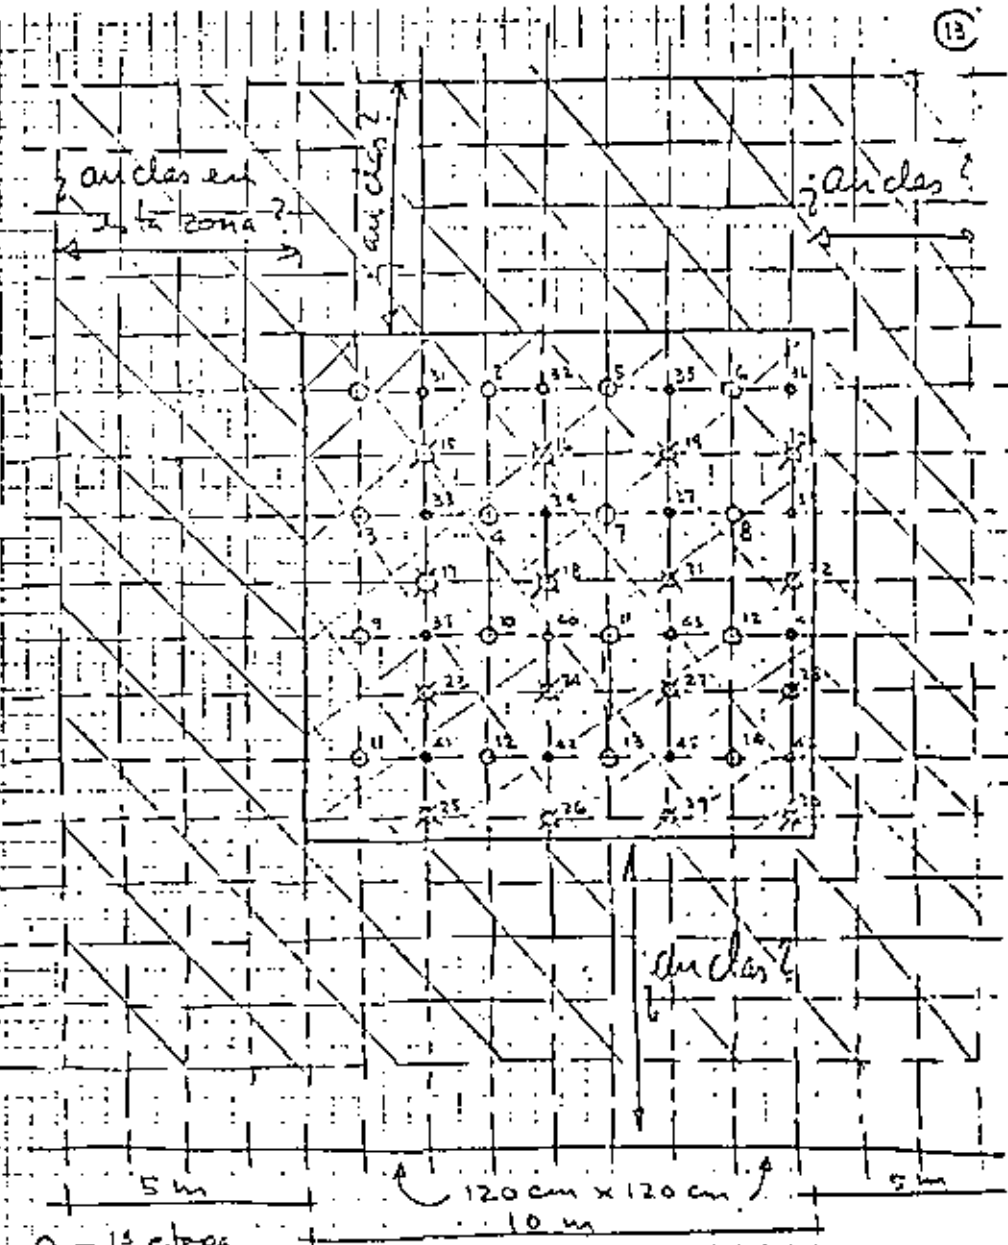 13
¿anclas en
esta zona?
¿anclas?
¿anclas?
31 2 32 5 35 6 36
15 16 19
33 34 37
3 4 7 8
17 18 21
9 10 40 11 43 12
23 24 27 28
11 41 12 42 13 45 14
25 26 29
¿anclas?
5 m 120 cm x 120 cm 5 m
10 m
O - 1ª etapa